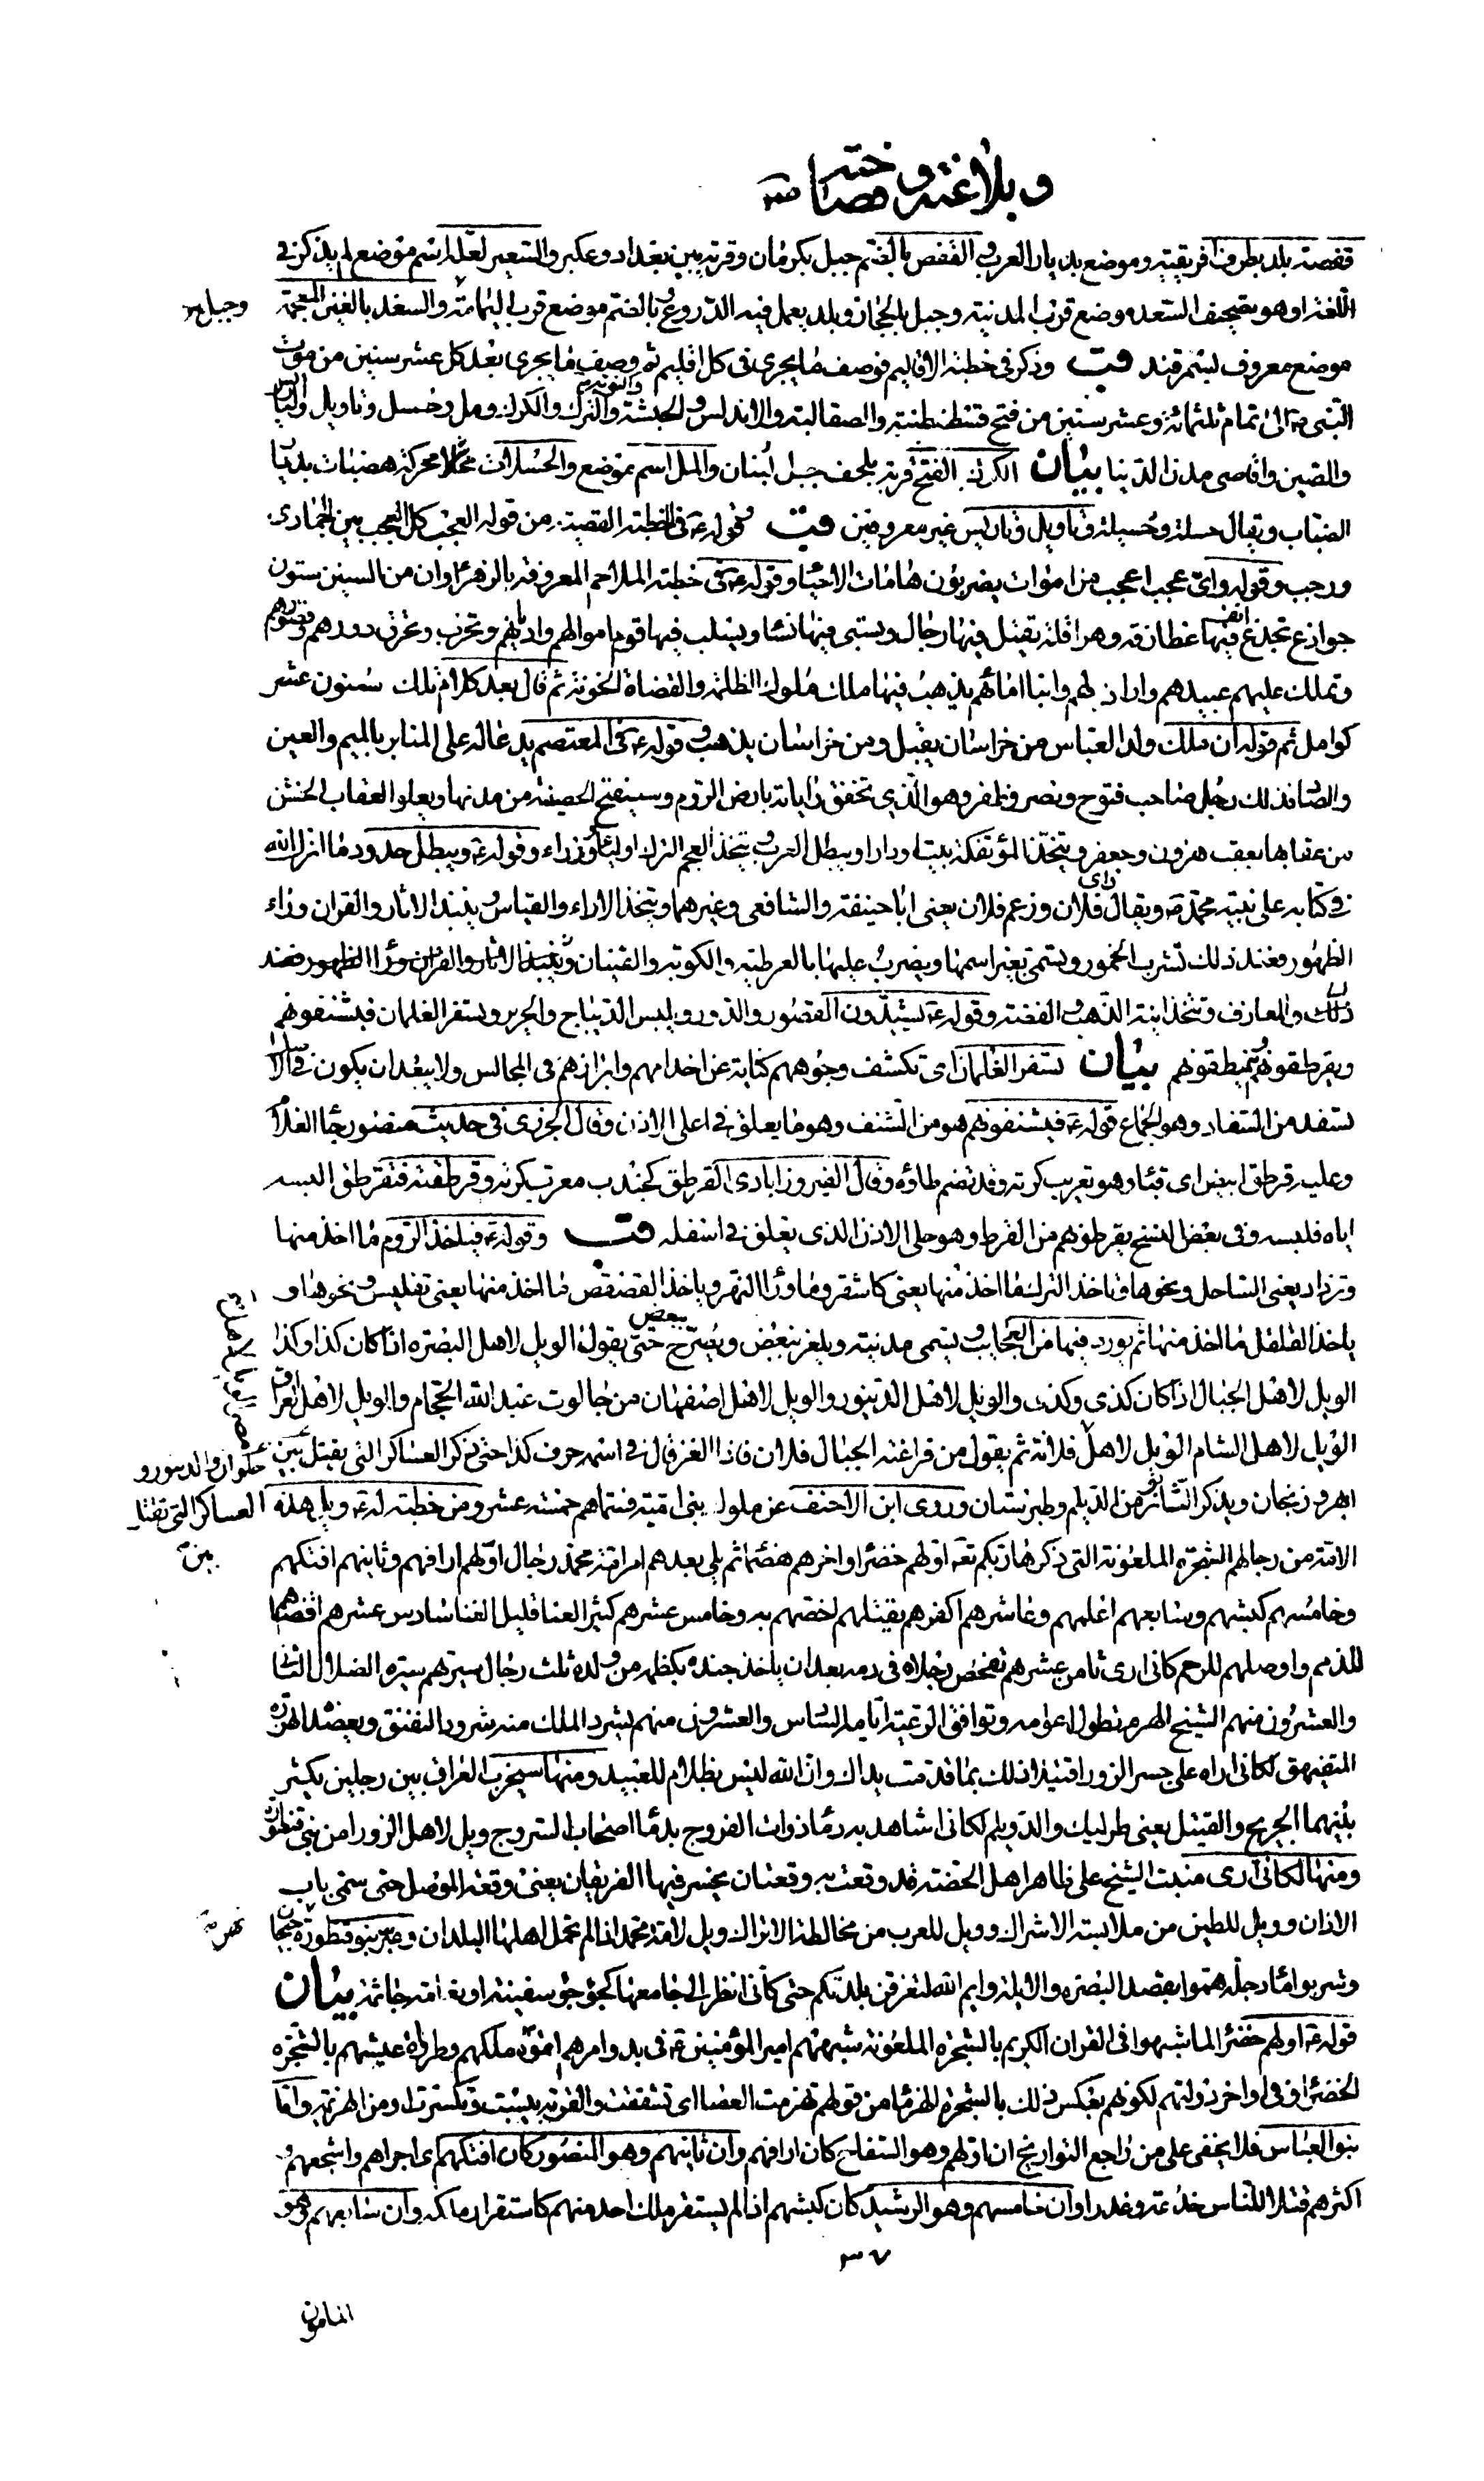 وبلاغته وفصاحته
قفصة بلد بطرف افريقية وموضع بديار العرب والقفص بالضم جبل بكرمان وقرية بين بغداد وعكبرا والسعير لعله اسم موضع لم يذكر في
اللغة او هو تصحيف السعد موضع قرب المدينة وجبل بالحجاز وبلد يعمل فيه الدروع وبالضم موضع قرب اليمامة والسغد بالغين المعجمة
وجبل
موضع معروف بسمرقند قب وذكر في خطبة الاقاليم فوصف ما يجري في كل اقليم ثم وصف ما يجري بعد كل عشر سنين من موت
النبي ص الى تمام ثلثمائة وعشر سنين من فتح قسطنطنية والصقالبة والاندلس والحبشة والنوبة والترك والكرك ومل وحسل وتاويل وتاريس
والصين واقاصي مدن الدنيا بيان الكرك بالفتح قرية بلحف جبل لبنان والمل اسم موضع والحسلات محركة هضبات بديار
الضباب ويقال حسلة وحسيلة وتاويل وتاريس غير معروفين قب قوله ع في الخطبة القصية من قوله العجب كل العجب بين جمادى
ورجب وقوله واي عجب اعجب من اموات يضربون هامات الاحياء وقوله ع في خطبة الملاحم المعروفة بالزهراء وان من السنين سنون
جواذع تجذع فيها غطارفة وهراقلة يقتل فيها رجال وتسبى فيها نساء ويسلب فيها قوم اموالهم واديانهم وتخرب وتحرق دورهم وقصورهم
وتملك عليهم عبيدهم واراذلهم وابناء امائهم يذهب فيها ملك ملوك الظلمة والقضاة الخونة ثم قال بعد كلام تلك سنون عشر
كوامل ثم قوله ان ملك ولد العباس من خراسان يقبل ومن خراسان يذهب وقوله ع في المعتصم يدعا له على المنابر بالميم والعين
والصاد فذلك رجل صاحب فتوح ونصر وظفر وهو الذي تخفق راياته بارض الروم وسيفتح الحصينة من مدنها ويعلو العقاب الخشن
من عقابها بعقب هرون وجعفر ويتخذ المؤتفكة بيتا ودارا ويبطل العرب ويتخذ العجم الترك اولياء ووزراء وقوله ع ويبطل حدود ما انزل الله
في كتابه على نبيه محمد ص ويقال راى فلان وزعم فلان يعني ابا حنيفة والشافعي وغيرهما ويتخذ الاراء والقياس وينبذ الاثار والقران وراء
الظهور فعند ذلك تشرب الخمور وتسمى بغير اسمها ويضرب عليها بالعرطبة والكوبة والقينات
والمعازف وتتخذ انية الذهب والفضة وقوله ع يشيدون القصور والدور ويلبس الديباج والحرير وتسفر الغلمان فيشنفونهم
ويقرطقونهم ويمنطقونهم بيان تسفر الغلمان اي تكشف وجوههم كناية عن اخدامهم وابرازهم في المجالس ولا يبعد ان يكون في الاصل
تسفد من السفاد وهو الجماع قوله ع فيشنفونهم هو من الشنف وهو ما يعلق في اعلى الاذن وقال الجزري في حديث منصور جاء الغلام
وعليه قرطق ابيض اي قباء وهو تعريب كرته وقد تضم طاؤه وقال الفيروزابادي القرطق كجندب معرب كرته وقرطقته فتقرطق البسه
اياه فلبسه وفي بعض النسخ يقرطونهم من القرط وهو حلي الاذن الذي يعلق في اسفله قب وقوله ع فياخذ الروم ما اخذ منها
وتزداد يعني الساحل ونحوها وتاخذ الترك ما اخذ منها يعني كاشغر وما وراء النهر وياخذ القفص ما اخذ منها يعني تفليس ونحوها و
ياخذ القلقل ما اخذ منها ثم يورد فيها من العجايب ويسمى مدينة ويلغز ببعض ويصرح ببعض حتى يقول الويل لاهل البصرة اذا كان كذا وكذا
الويل لاهل الجبال اذا كان كذى وكذى والويل لاهل الدينور والويل لاهل اصفهان من جالوت عبد الله الحجام والويل لاهل العراق
الويل لاهل الشام الويل لاهل فلانة ثم يقول من فراعنة الجبال فلان فاذا الغز قال في اسمه حرف كذا حتى ذكر العساكر التي يقتل بين
حلوان والدينور و
ابهر وزنجان ويذكر الثائر من الديلم وطبرستان وروى ابن الاحنف عن ملوك بني امية فسماهم خمسة عشر ومن خطبة له ع ويل هذه
العساكر التي تقتل
بين
الامة من رجالهم الشجرة الملعونة التي ذكرها ربكم تع اولهم خضراء واخرهم هضماء ثم يلي بعدهم امر امة محمد رجال اولهم ارافهم وثانيهم افتكهم
وخامسهم كبشهم وسابعهم اعلمهم وعاشرهم اكفرهم يقتله اخصهم به وخامس عشرهم كثير العنا قليل الغنا سادس عشرهم اقضاهم
للذمم واوصلهم للرحم كاني ارى ثامن عشرهم تفحص رجلاه في دمه بعد ان ياخذ جنده بكظمه من ولده ثلث رجال سيرتهم سيرة الضلال الثاني
والعشرون منهم الشيخ الهرم تطول اعوامه وتوافق الرعية ايامه السادس والعشرون منهم يشرد الملك منه شرود النقنق ويعضده الهزرة
المتفيهق لكاني اراه على جسر الزوراء قتيلا ذلك بما قدمت يداك وان الله ليس بظلام للعبيد ومنها سيخرب العراق بين رجلين يكثر
بينهما الجريح والقتيل يعني طرليك والدويلم لكاني اشاهد به دماء ذوات الفروج بدماء اصحاب السروج ويل لاهل الزوراء من بني قنطورة
ومنها لكاني ارى منبت الشيح على ظاهر اهل الحضة قد وقعت به وقعتان يخسر فيها الفريقان يعني وقعة الموصل حتى سمي باب
الاذان وويل للطين من ملابسة الاشراك وويل للعرب من مخالطة الاتراك ويل لامة محمد اذا لم تحمل اهلها البلدان وعبر بنو قنطورة نهر جيحان
وشربوا ماء دجلة هموا بقصد البصرة والايلة وايم الله لتغرقن بلدتكم حتى كاني انظر الى جامعها كجؤجؤ سفينة او نعامة جاثمة بيان
قوله ع اولهم خضراء لما شبهوا في القران الكريم بالشجرة الملعونة شبههم امير المؤمنين ع في بدو امرهم لقوة ملكهم وطراوة عيشهم بالشجرة
الخضراء وفي اواخر دولتهم لكونهم بعكس ذلك بالشجرة الهزماء من قولهم تهزمت العصا اي تشققت والقربة يبست وتكسرت او من الهزيمة واما
بنو العباس فلا يخفى على من راجع التواريخ ان اولهم وهو السفاح كان ارافهم وان ثانيهم وهو المنصور كان افتكهم اي اجراهم واشجعهم و
اكثرهم قتلا للناس خدعة وغدرا وان خامسهم وهو الرشيد كان كبشهم اذ لم يستقر ملك احد منهم كاستقرار ملكه وان سابعهم وهو
٣٧
المامون